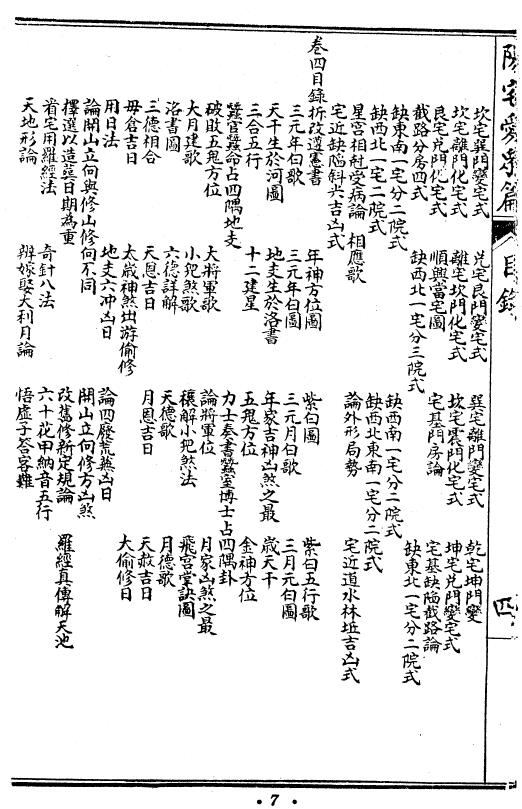 陽宅愛眾篇 目錄 四
坎宅巽門變宅式 兌宅艮門變宅式 巽宅離門變宅式 乾宅坤門變
坎宅離門化宅式 離宅坎門化宅式 坎宅震門化宅式 坤宅兌門變宅式
艮宅兌門化宅式 順興當宅圖 宅基門房論 宅基缺陷截路論
截路分房四式 缺西北一宅分三院式 缺東北一宅分二院式
缺東南一宅分二院式 缺西南一宅分二院式
缺西北一宅二院式 缺西北東南一宅分二院式
星宮相尅堂病論 相應歌 論外形局勢 宅近道水林坵吉凶式
宅近缺陷斜尖吉凶式
卷四目錄折改遵憲書
三元年白歌 年神方位圖 紫白圖 紫白五行歌
天干生於河圖 三元年白圖 三元月白歌 三月元白圖
三合五行 地支生於洛書 年家吉神凶煞之最 歲天干
蠶官蠶命占四隅地支 十二建星 五鬼方位 金神方位
破敗五鬼方位 力士奏書蠶室博士占四隅卦
大月建歌 大將軍歌 論將軍位 月家凶煞之最
洛書圖 小兒煞歌 穰解小兒煞法 飛宮掌訣圖
三德相合 六德詳解 天德歌 月德歌
毋倉吉日 天恩吉日 月恩吉日 天赦吉日
用日法 太歲神煞出游偷修 大偷修日
論開山立向與修山修向不同 地支六冲凶日 論四廢荒蕪凶日
擇選以造葬日期為重 開山立向修方凶煞
看宅用羅經法 奇針八法 改舊修新定規論 羅經真傳解天池
天地形論 辨嫁娶大利月論 六十花甲納音五行
悟虛子答客難
• 7 •